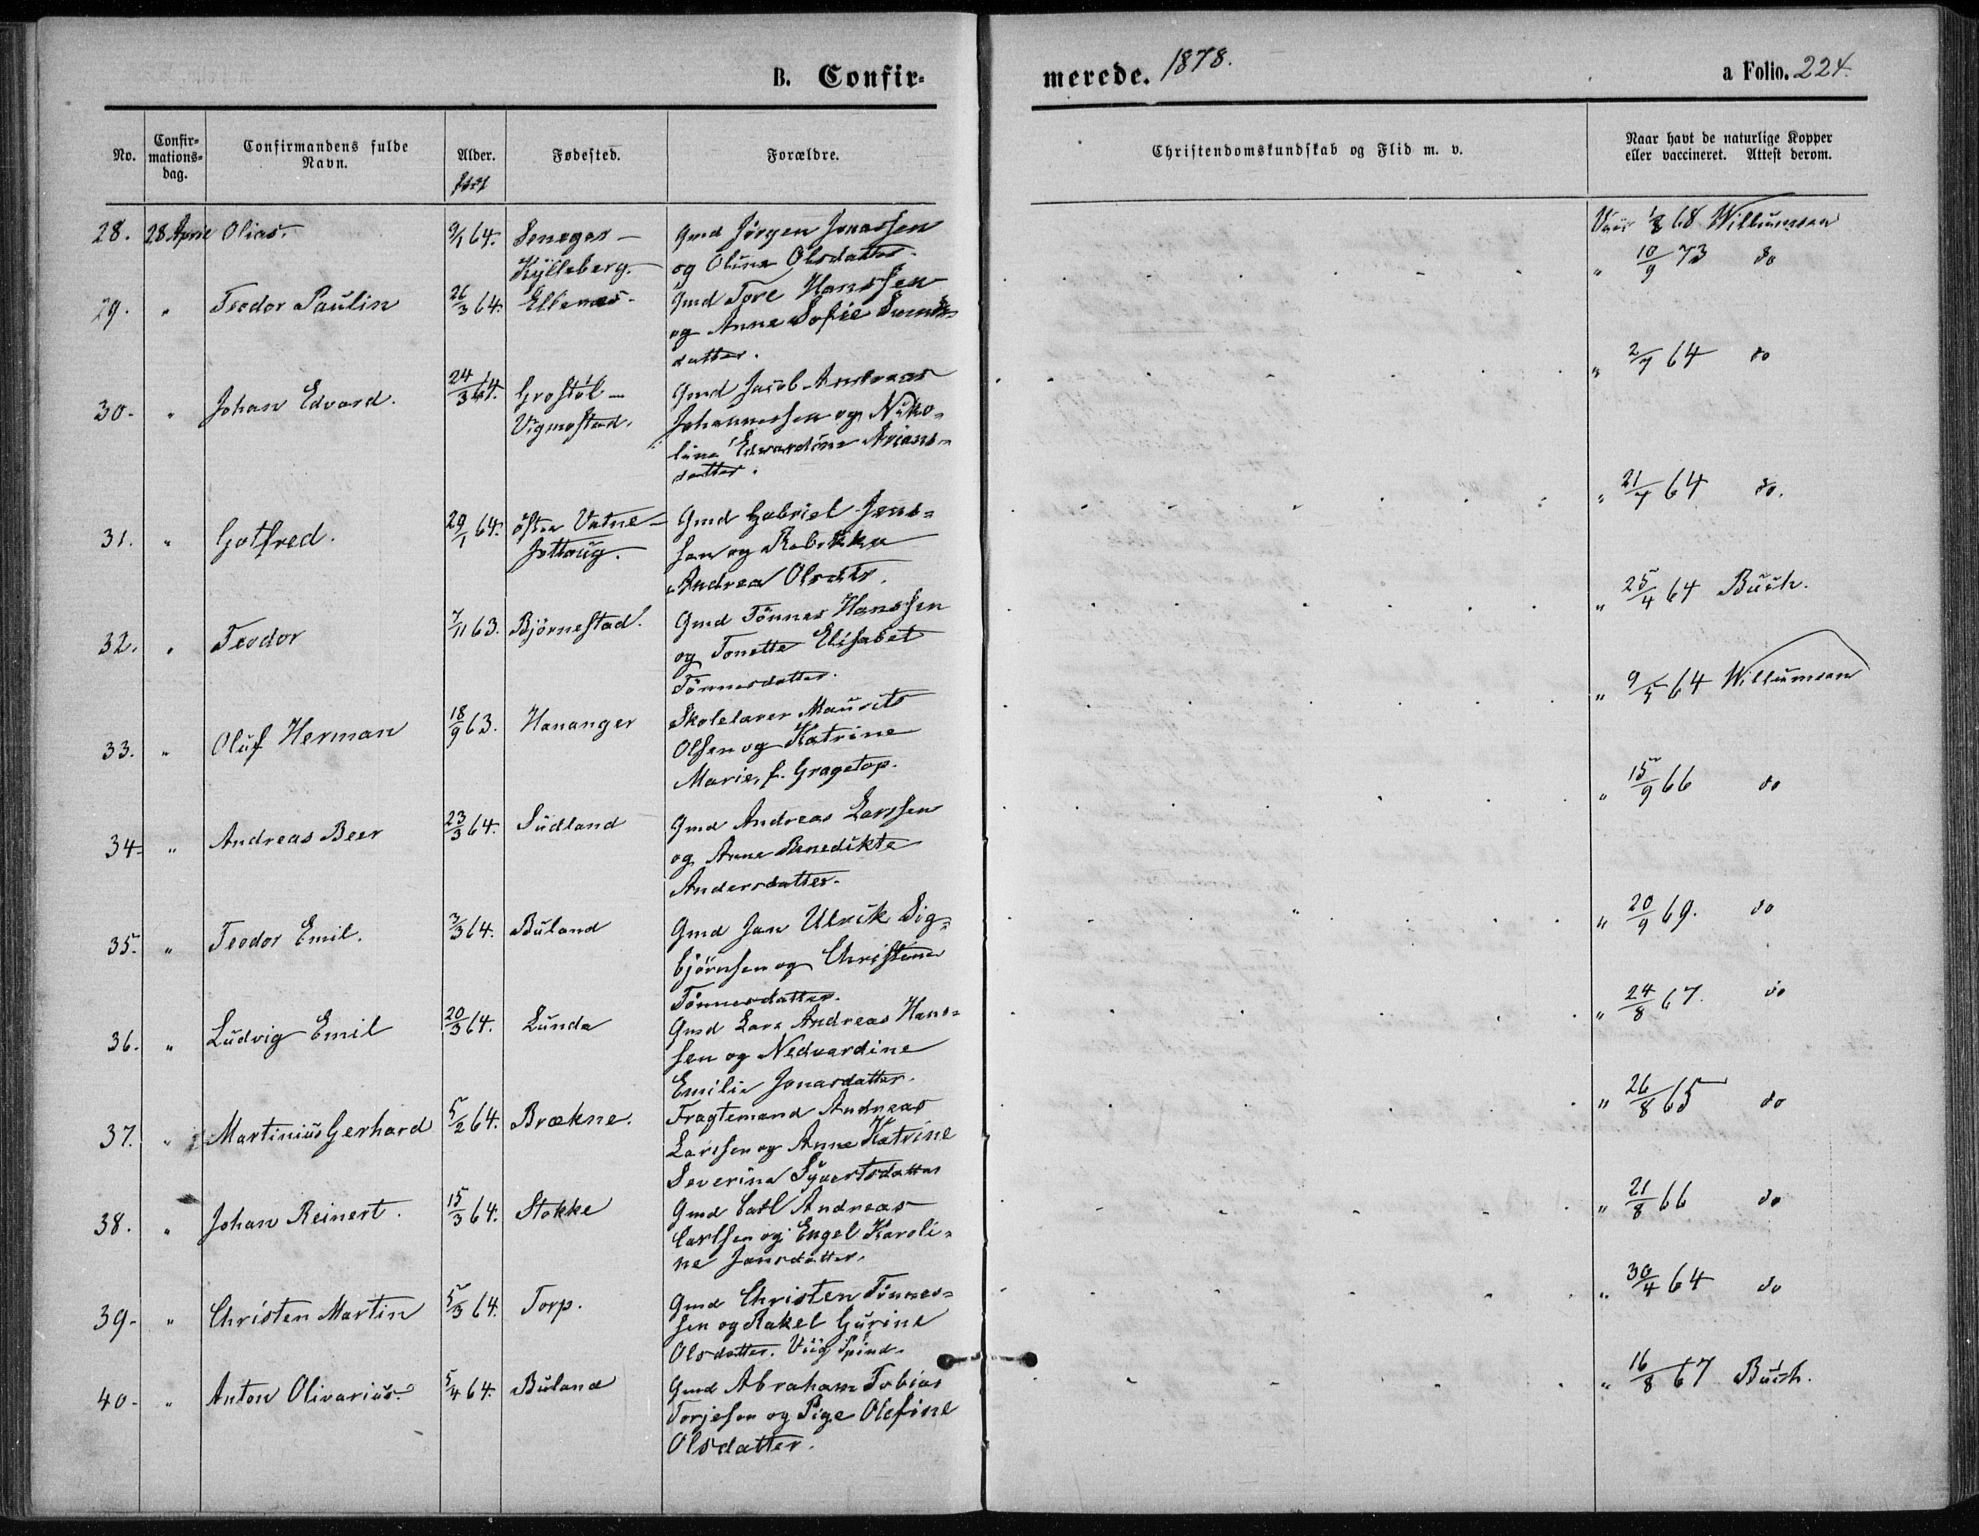 B. Confir-
merede. 1878.
a Folio. 224.
No.
Confir-
mations-
dag.
Confirmandens fulde
Navn.
Alder.
Fødested.
Forældre.
Christendomskundskab og Flid m. v.
Naar havt de naturlige Kopper
eller vaccineret. Attest derom.
28. 28 April Olias. 9/1 64.
Kylleberg.
Gmd Jørgen Jonassen
og Oline Olsdatter.
68 Willumsen
29. " Teodor Paulin 26/3 64. Ellenes.
Gmd Tore Hanssen
og Anne Sofie
datter.
" 10/9 73 do
30. " Johan Edvard. 24/3 64. Grostøl -
Vigmostad.
Gmd Jacob Andreas
Johannessen og Niko-
line Edvardine Arians-
datter.
" 2/7 64 do
31. " Gotfred. 29/1 64. östre Vatne -
Gmd Gabriel Jens-
sen og Rebekka
Andrea Olsdtr.
" 21/7 64 do.
32. " Teodor 7/11 63. Björnestad.
Gmd Tönnes Hanssen
og Tonette Elisabet
Tönnesdatter.
" 25/4 64 Buch.
33. " Oluf Herman 18/9 63. Hananger
Skolelærer Maurits
Olsen og Katrine
Marie, f. Gragetop.
" 9/5 64 Willumsen
34. " Andreas Beer 23/3 64. Sudland
Gmd Andreas Larssen
og Anne Benedikte
Andersdatter.
" 15/9 66 do
35. " Teodor Emil. 3/3 64. Buland
Gmd Jan Ulrik Sig-
björnsen og Christine
Tönnesdatter.
" 20/9 69. do
36. " Ludvig Emil 20/3 64. Lunde
Gmd Lars Andreas Hans-
sen og Nedvardine
Emilie Jonasdatter.
" 24/8 67. do
37. " Martinius Gerhard 5/2 64. Brækne.
Fragtemand Andreas
Larssen og Anne Katrine
Severine Syvertsdatter
" 26/8 65 do
38. " Johan Reinert. 15/3 64. Stokke
Gmd Carl Andreas
Carlsen og Engel Karoli-
ne Jansdatter.
" 21/8 66 do
39. " Christen Martin 5/3 64. Torp.
Gmd Christen Tönnes-
sen og Rakel Gurine
Olsdatter.
" 30/4 64 do
40. " Anton Olivarius. 5/4 64. Buland
Gmd Abraham Tobias
Torjesen og Pige Olefine
Olsdatter.
" 16/8 67 Buch.